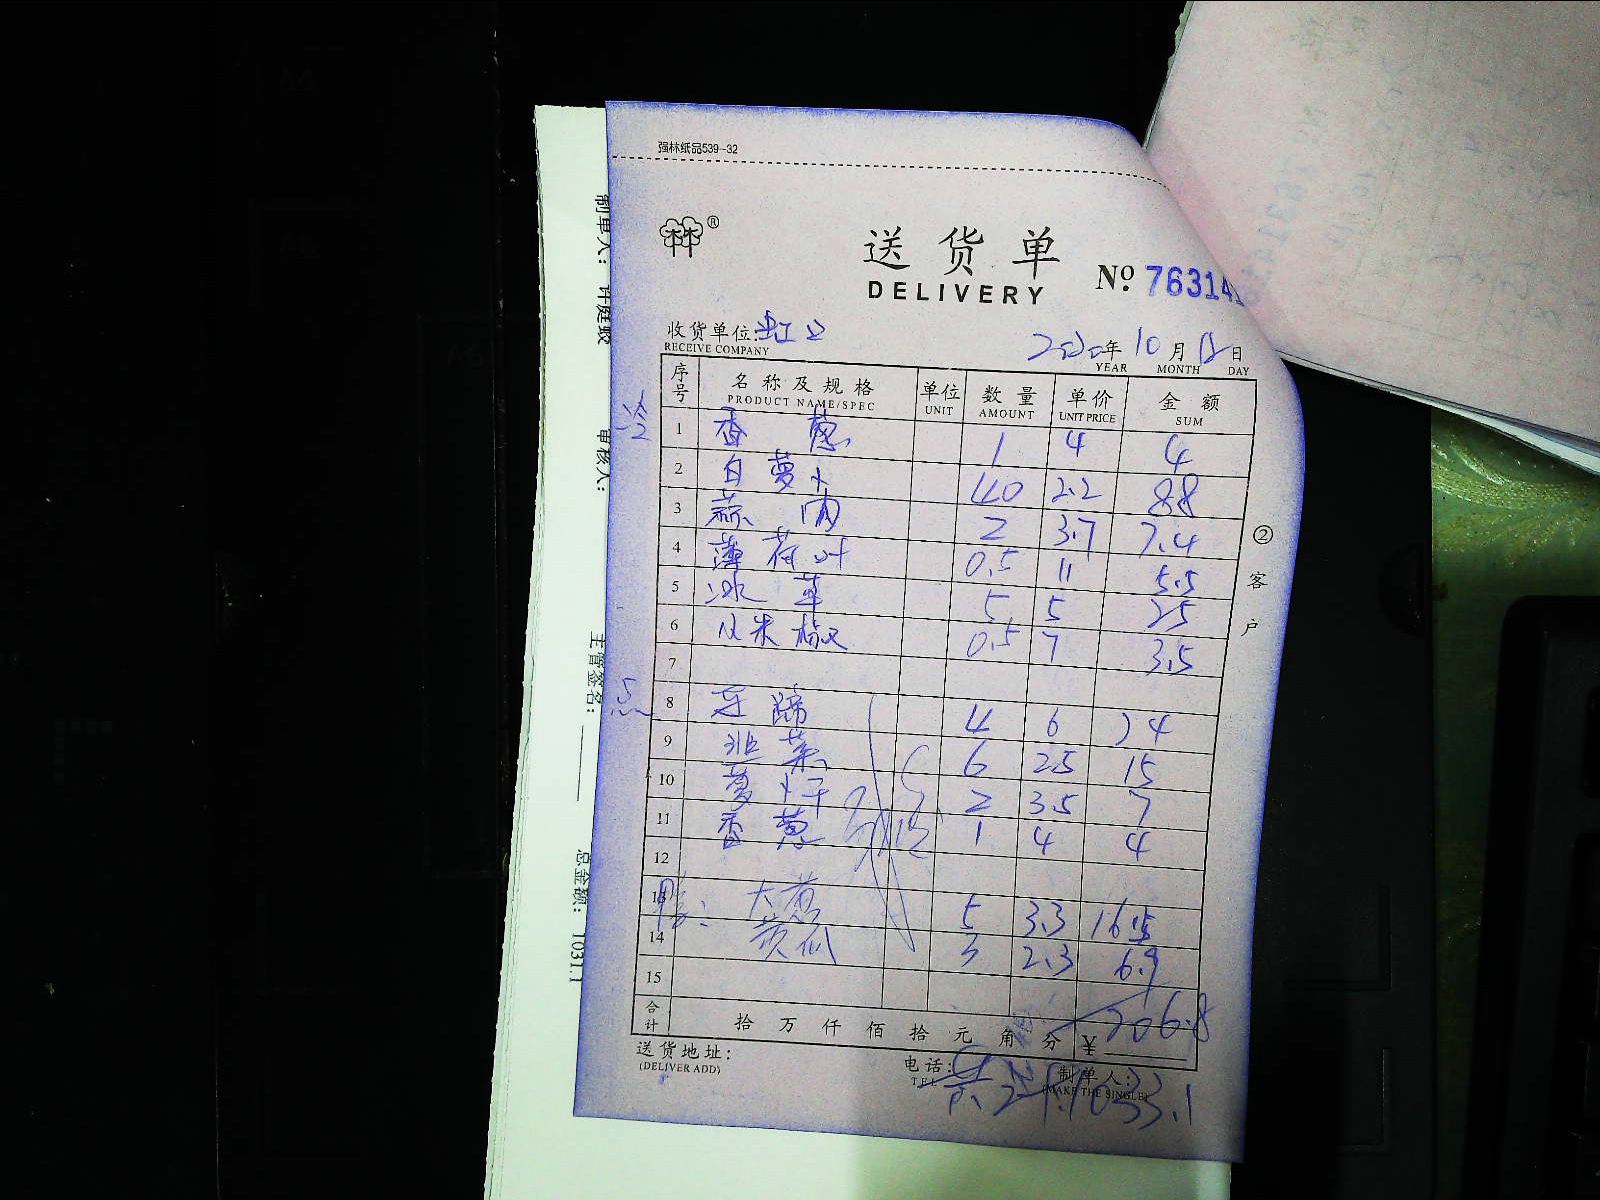 强林纸品539-32
林®
送货单
DELIVERY
№ 76314
收货单位: 虹口
RECEIVE COMPANY
年 10 月 12 日
YEAR MONTH DAY
序号 名称及规格 单位 数量 单价 金额
PRODUCT NAME/SPEC UNIT AMOUNT UNIT PRICE SUM
冷
1 香葱 1 4 4
2 白萝卜 40 2.2 88
3 蒜肉 2 3.7 7.4
4 薄荷叶 0.5 11 5.5
5 冰草 5 5 25
6 小米椒 0.5 7 3.5
7
点
8 马蹄 4 6 24
9 韭菜 6 2.5 15
10 萝卜干 2 3.5 7
11 香葱 1 4 4
12
13 大葱 5 3.3 16.5
14 黄瓜 3 2.3 6.9
15
合计 拾万仟佰拾元角分 ¥ 206.8
送货地址:
(DELIVER ADD)
电话:
TEL
制单人:
(MAKE THE SINGLE)
1033.1
②客户
制单人: 许庭蛟
审核人:
主管签名:
总金额: 1031.1